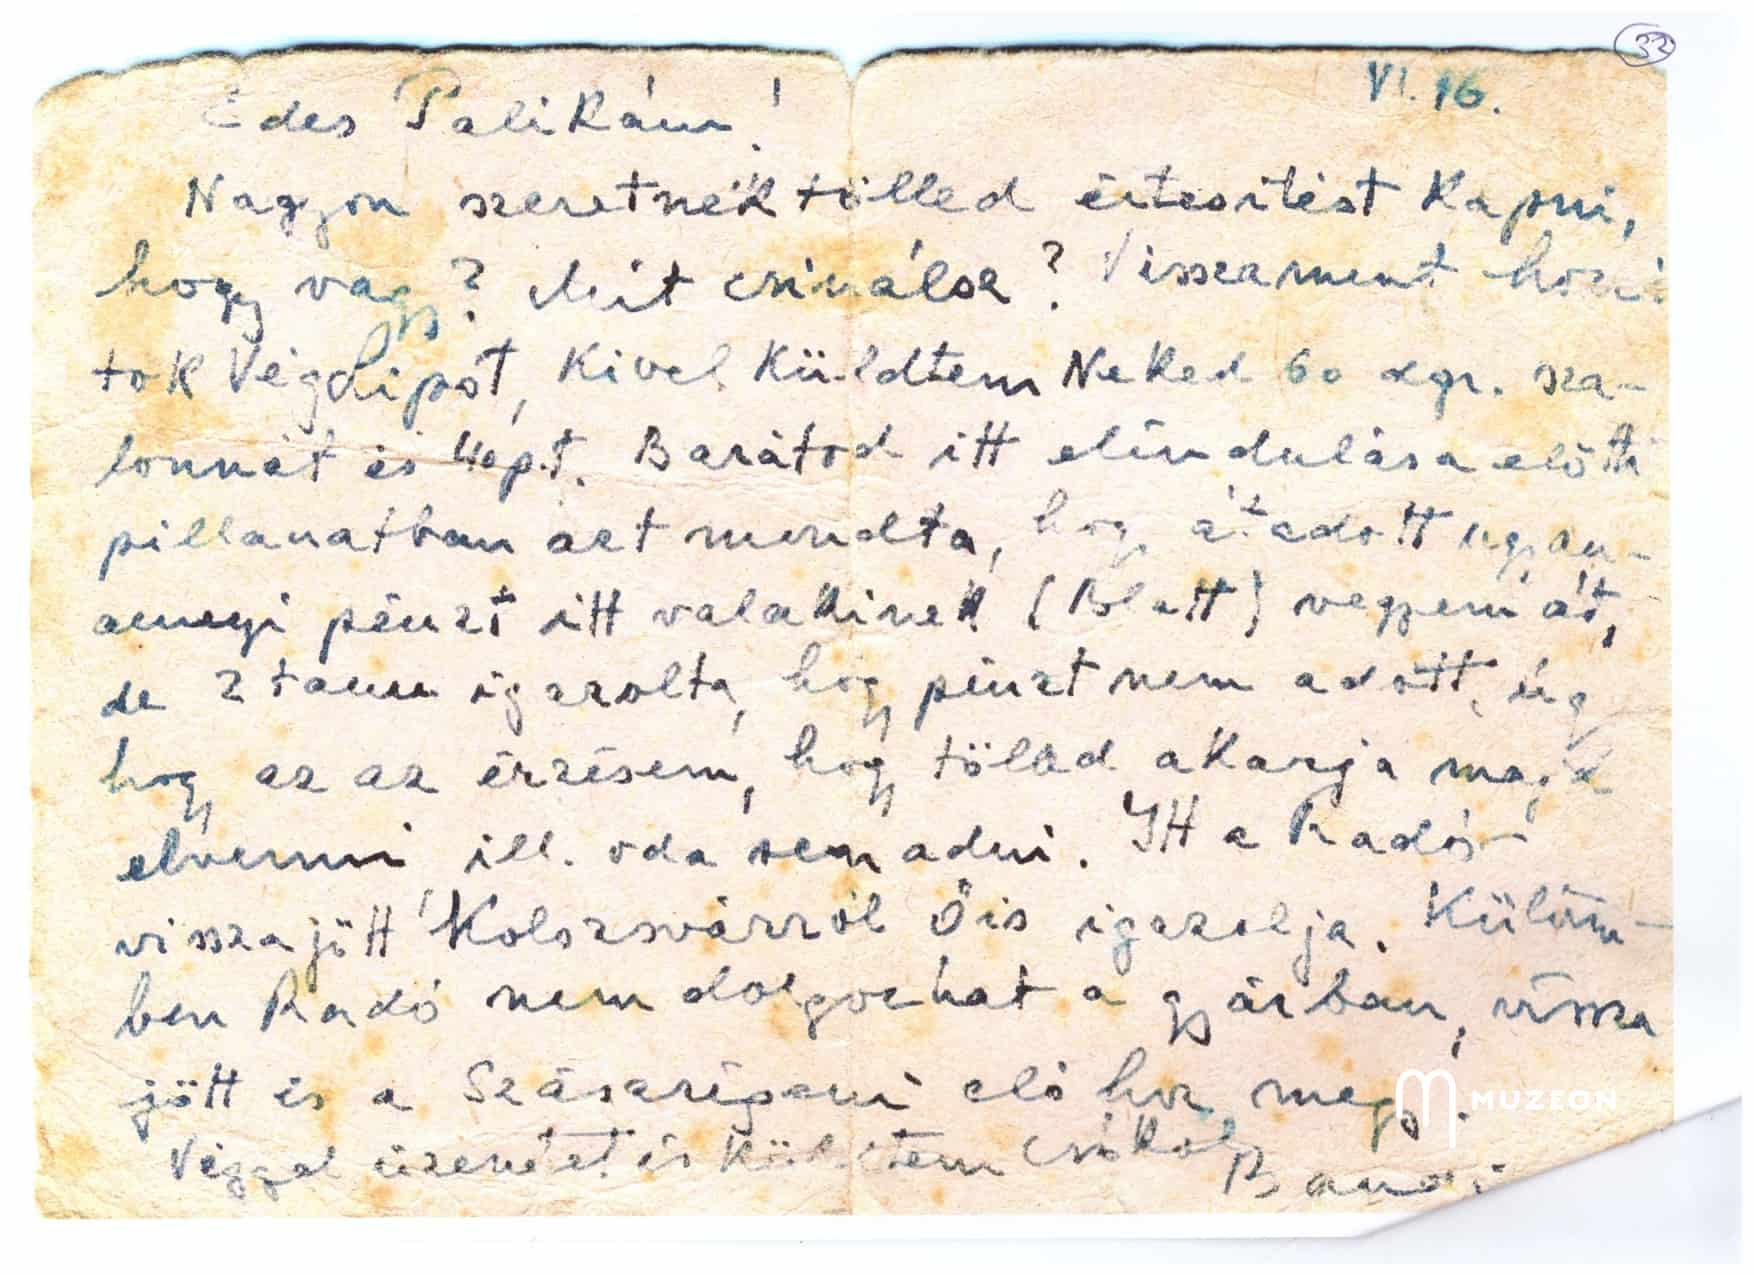 32
VI. 16.
Édes Palikám!
Nagyon szeretnék tölled értesitést kapni,
hogy vagy? Mit csinálsz? Visszament hozzá
tok Végh Lipót, kivel küldtem Neked 60 dgr. sza-
lonnát és 40 p.t. Barátod itt elindulása előtti
pillanatban azt mondta, hog átadott ugyan-
annyi pénzt itt valakinek (Blatt) vegyem át,
de 2 tanu igazolta, hogy pénzt nem adott, úg
hogy az az érzésem, hogy tölled akarja majd
elvenni ill. oda sem adni. Itt a Radó-
visszajött Kolozsvárról Ő is igazolja. Külöm-
ben Radó nem dolgozhat a gyárban, vissza
jött és a Szászrégeni elő hoz megy.
Véggel üzenetet is küldtem Csókol
Bandi
MUZEON